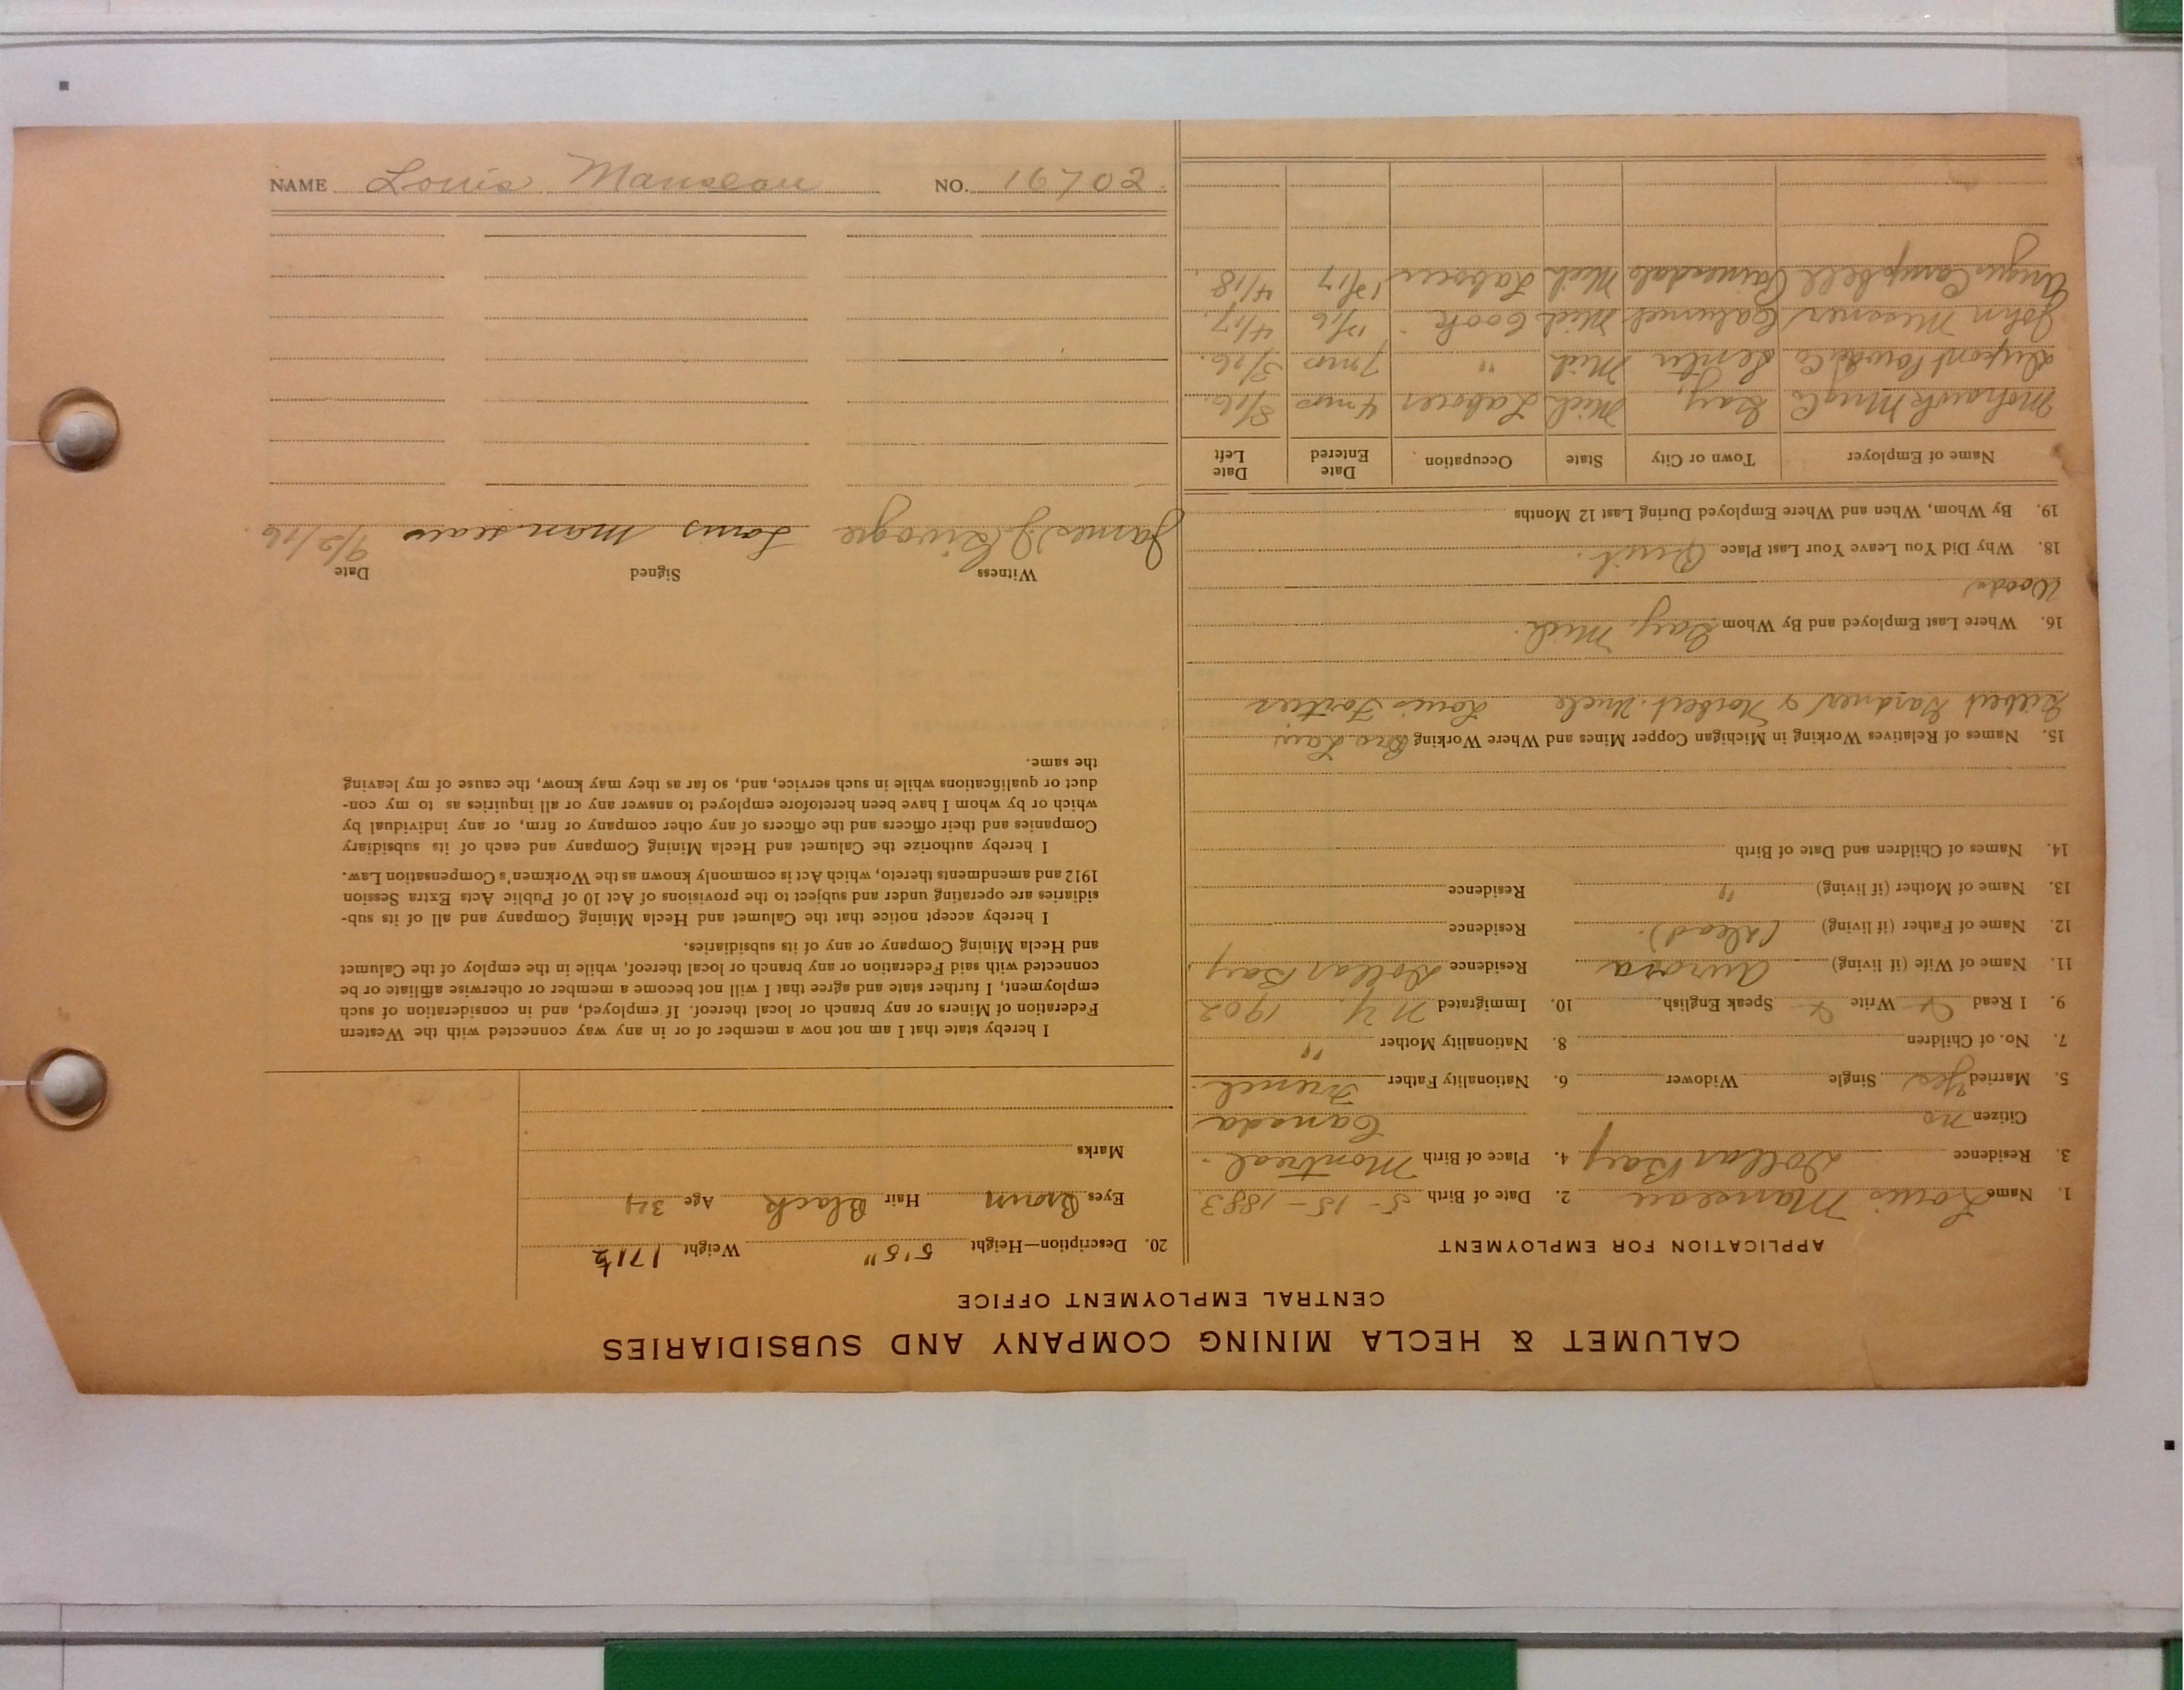 CALUMET & HECLA MINING COMPANY AND SUBSIDIARIES
CENTRAL EMPLOYMENT OFFICE
APPLICATION FOR EMPLOYMENT
1. Name Louis Manseau 2. Date of Birth 5-15-1883
3. Residence Dollar Bay 4. Place of Birth Montreal.
Citizen no Canada
5. Married Yes Single Widower 6. Nationality Father French.
7. No. of Children 8. Nationality Mother "
9. I Read Write Speak English 10. Immigrated N.Y. 1902
11. Name of Wife (if living) Aurora Residence Dollar Bay
12. Name of Father (if living) (dead). Residence
13. Name of Mother (if living) " Residence
14. Names of Children and Date of Birth
15. Names of Relatives Working in Michigan Copper Mines and Where Working Bro Law
Gardner & Norbert. Uncle Louis Fortier
16. Where Last Employed and By Whom Gay, Mich.
Woods
18. Why Did You Leave Your Last Place Quit.
19. By Whom, When and Where Employed During Last 12 Months
Name of Employer Town or City State Occupation Date Entered Date Left
Mohawk Mng Co Gay, Mich Laborer 4 mos 8/16.
Dupont Powder Co Senter Mich " 7 mos 3/16.
John Messner Calumet Mich Cook 12/16 4/17.
Angus Campbell Painesdale Mich Laborer 12/17 4/18.
20. Description—Height 5'5" Weight 171½
Eyes Brown Hair Black Age 34
Marks
I hereby state that I am not now a member of or in any way connected with the Western
Federation of Miners or any branch or local thereof. If employed, and in consideration of such
employment, I further state and agree that I will not become a member or otherwise affiliate or be
connected with said Federation or any branch or local thereof, while in the employ of the Calumet
and Hecla Mining Company or any of its subsidiaries.
I hereby accept notice that the Calumet and Hecla Mining Company and all of its sub-
sidiaries are operating under and subject to the provisions of Act 10 of Public Acts Extra Session
1912 and amendments thereto, which Act is commonly known as the Workmen's Compensation Law.
I hereby authorize the Calumet and Hecla Mining Company and each of its subsidiary
Companies and their officers and the officers of any other company or firm, or any individual by
which or by whom I have been heretofore employed to answer any or all inquiries as to my con-
duct or qualifications while in such service, and, so far as they may know, the cause of my leaving
the same.
Witness Signed Date
James Louis Manseau 9/2/16.
NAME Louis Manseau NO. 16702.